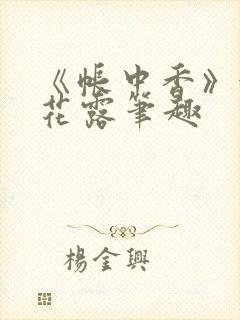 《帐中香》
花露笔趣
楊金興